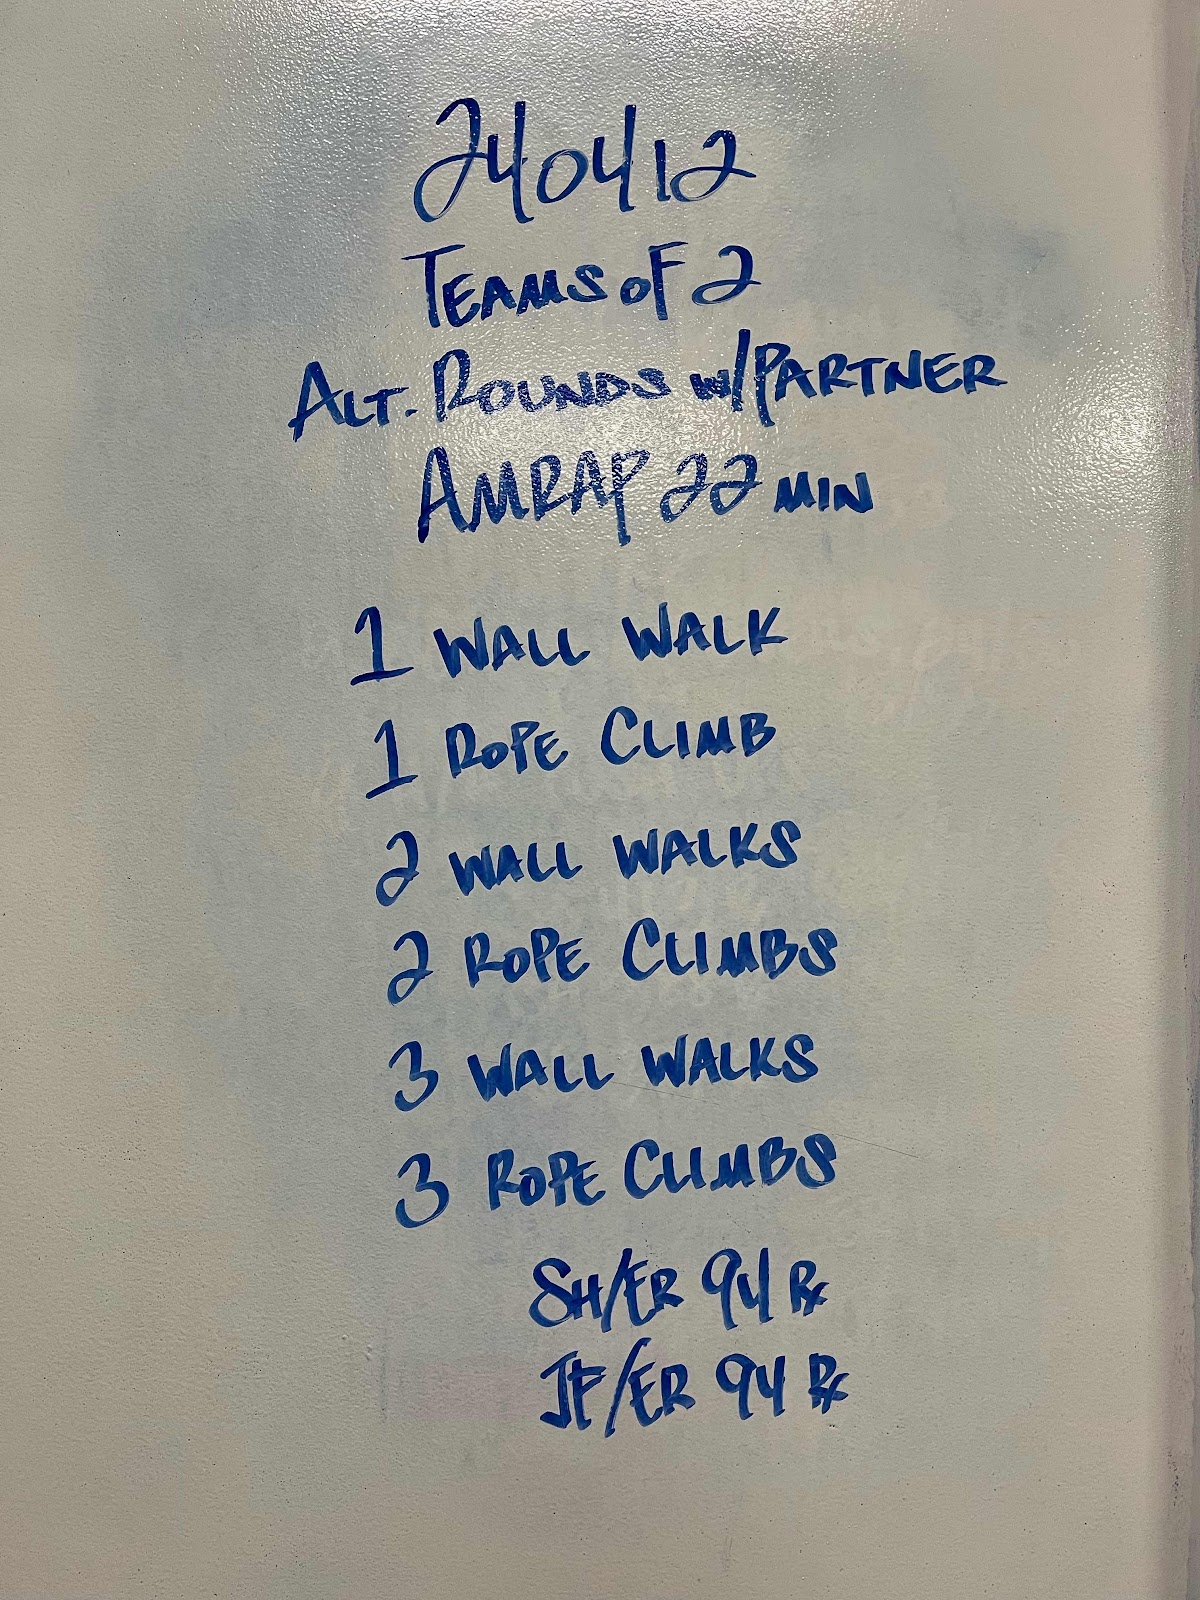 240412
TEAMS OF 2
ALT. ROUNDS W/PARTNER
AMRAP 22 MIN
1 WALL WALK
1 ROPE CLIMB
2 WALL WALKS
2 ROPE CLIMBS
3 WALL WALKS
3 ROPE CLIMBS
SH/ER 94 Rx
JF/ER 94 Rx